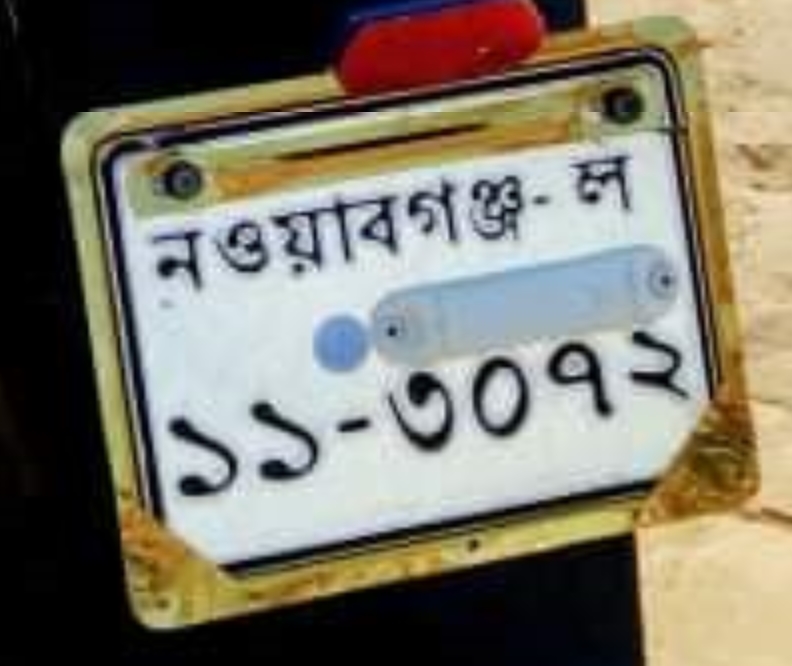 নওয়াবগঞ্জ- ল
১১-৩০৭২